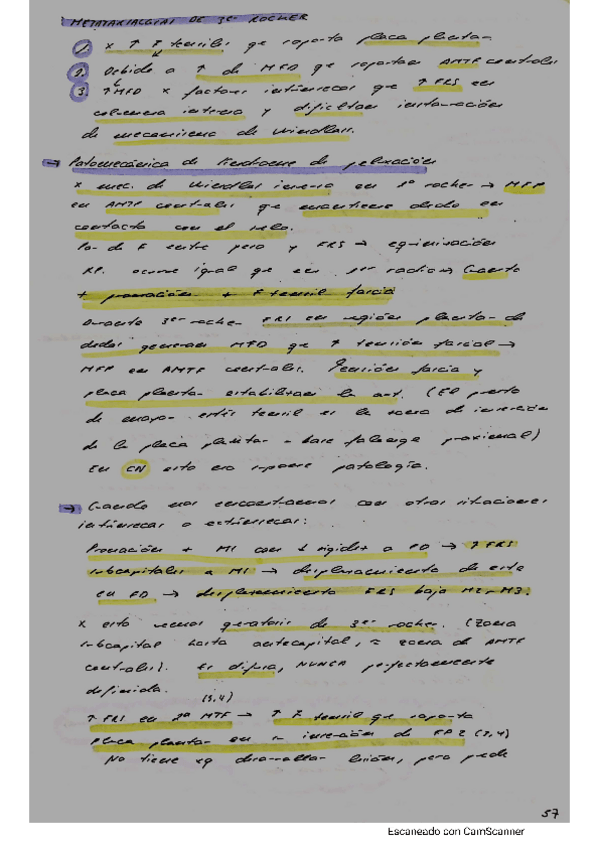 METATARSALGIAS DE 3er ROCKER
1. x ↑ F tensiles qe soporta placa plantar
2. Debido a ↑ de MFD qe soportan AMTF centrales
3. ↑MFD x factores intrínsecos qe ↑ FRS en
columna interna y dificultan instauración
de mecanismo de Windlass.
→ Patomecánica de síndrome de pelxación
x mec. de Windlass inverso en 1º rocker → MFP
en AMTF centrales qe mantiene dedo en
contacto con el suelo.
Par de F entre peso y FRS → equinización
RP. ocurre igual qe en 1er radio → Cuanto
+ pronación + F tensil fascia
Durante 3er rocker FRS en región plantar de
dedos generan MFD qe ↑ tensión fascial →
MFP en AMTF centrales. Tensión fascia y
placa plantar estabilizan la art. (El punto
de mayor estrés tensil es la zona de inserción
de la placa plantar - base falange proximal)
En CN esto no supone patología.
→ Cuando nos encontramos con otras situaciones
intrínsecas o extrínsecas:
Pronación + M1 con ↓ rigidez a FD → ↑ FRS
subcapitales a M1 → desplazamiento de este
en FD → desplazamiento FRS bajo M2-M3.
x esto vemos queratosis de 3er rocker. (Zona
subcapital hasta antecapital, = zona de AMTF
centrales). Es difusa, NUNCA perfectamente
definida.
(3,4)
↑ FRS en 2ª MTF → ↑ F tensil qe soporta
placa plantar en su inserción de FP2 (3,4)
No tiene xq desarrollar lesión, pero puede
57
Escaneado con CamScanner